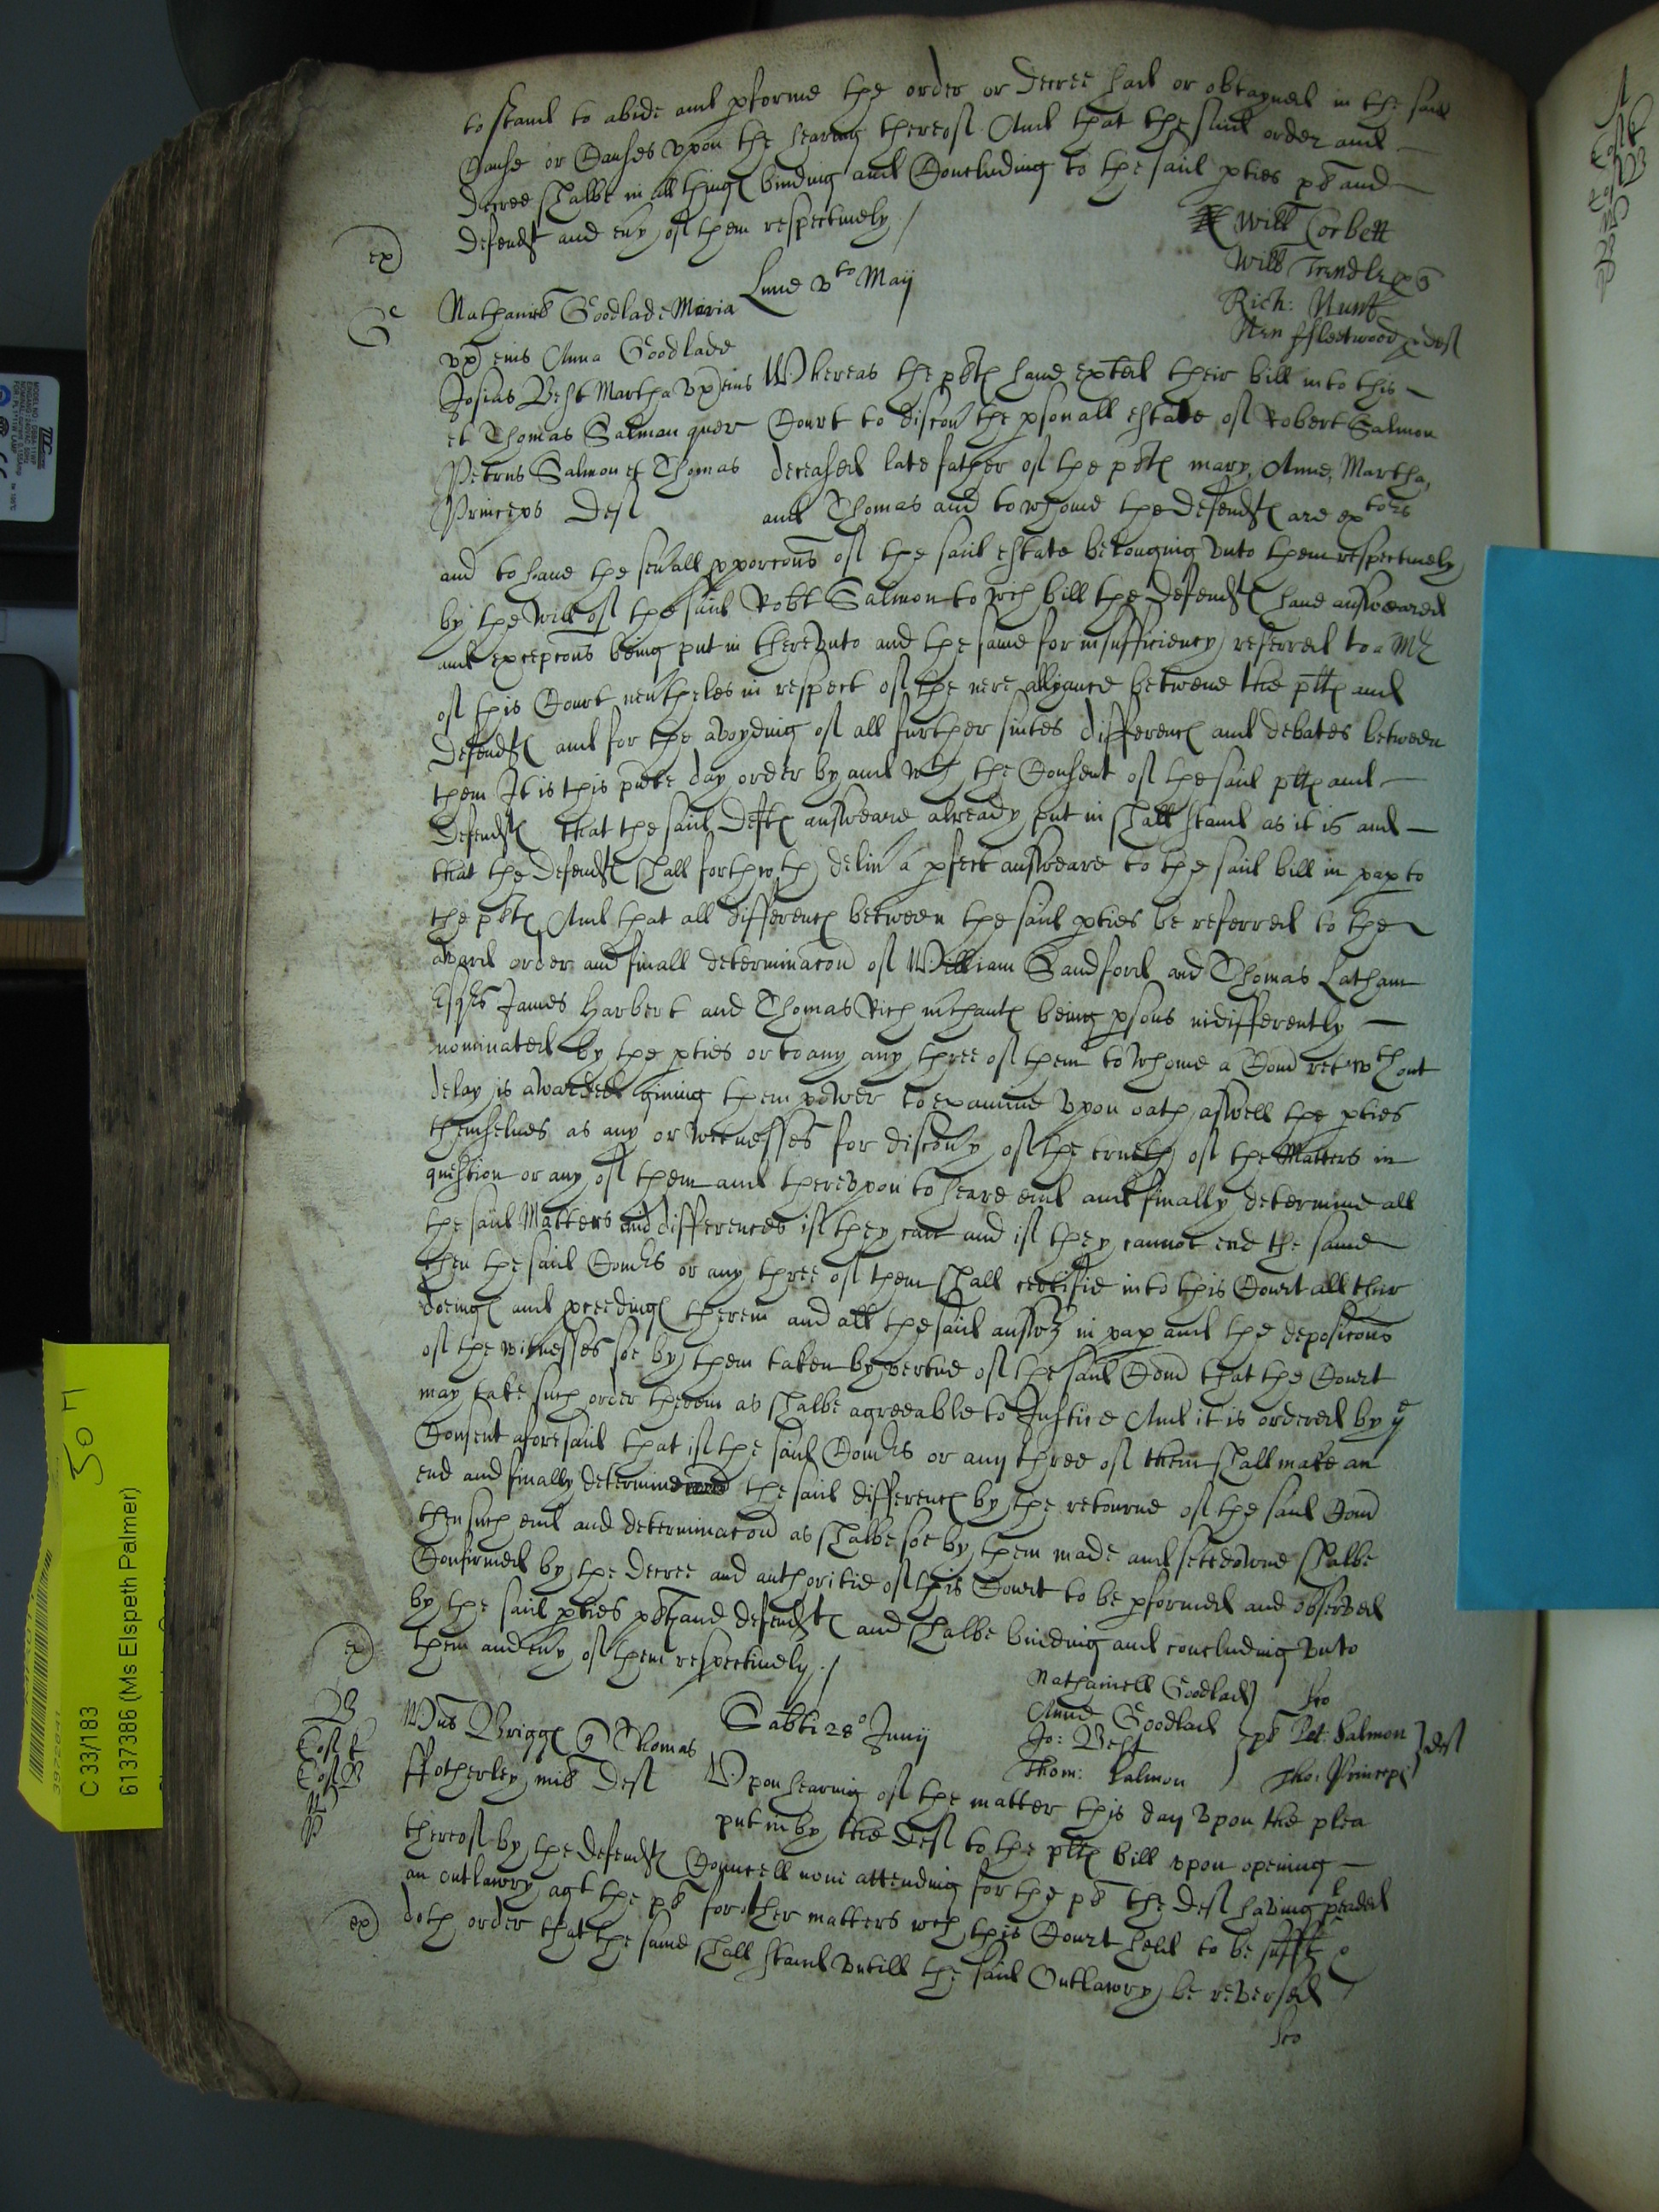 to stand to abide and pforme the order or decree had or obtayned in the said
Cause or Causes vpon the hearing thereof And that the said order and
decree shalbe in all things binding and Concluding to the said pties pl and
defendt and euy of them respectiuely /
Will Corbett
Will Trendle p q
Rich: Hunt
Hen ffleetwood p def
ex
G
Lune vto Maij
Nathaniel Goodlade Maria
vx eius Anna Goodlade
Josias Best Martha vx eius
et Thomas Salman quer
Petrus Salmon et Thomas
Princeps Def
Whereas the plts haue exted their bill into this
Court to discouer the psonall estate of Robert Salmon
deceased late father of the plts mary, Anne, Martha,
and Thomas and to whome the defendts are extors
and to haue the seuall pporcons of the said estate belonging vnto them respectiuely
by the will of the said Robt Salmon to wch bill the defendts haue answeared
and excepcons being put in therevnto and the same for insufficiency referred to a Mr
of this Court neutheles in respect of the nere allyance betwene the plts and
defendts and for the avoyding of all further suites differencs and debates betweene
them It is this pnte day order by and wth the Consent of the said plts and
defendts that the said defts answeare already put in shall stand as it is and
that the defendts shall forthwth deliu a pfect answeare to the said bill in pap to
the plts And that all differencs between the said pties be referred to the
award order and finall determinacon of William Sandford and Thomas Latham
Esqrs James Harbert and Thomas Rich mchants being psons indifferently
nominated by the pties or to any any three of them to whome a Com ret wthout
delay is awarded giuing them power to examine vpon oath aswell the pties
themselues as any or wittnesses for discouy of the trueth of the Matters in
question or any of them and therevpon to heare end and finally determine all
the said Matters and differences if they can and if they cannot end the same
then the said Comrs or any three of them shall certifie into this Court all their
doeings and pceedings therein and all the said answs in pap and the deposicons
of the witnesses soe by them taken by vertue of the said Com that the Court
may take such order therein as shalbe agreeable to Justice And it is ordered by ye
Consent aforesaid that if the said Comrs or any three of them shall make an
end and finally determine the said differencs by the retourne of the said Com
then such end and determinacon as shalbe soe by them made and sett downe shalbe
Confirmed by the decree and authoritie of this Court to be pformed and observed
by the said pties plts and defendts and shalbe binding and concluding vnto
them and euy of them respectiuely /
ex
Nathaniell Goodlad
Anne Goodlad
Jo: Best
Thom: Salmon
pl Pet: Salmon
Tho: Princeps
def
B
Wms Briggs q Thomas
ffotherley mil Def
Sabti 28o Junij
Vpon hearing of the matter this day vpon the plea
put in by the def to the plts bill vpon opening
thereof by the defendts Councell none attending for the pl the def having pleaded
an outlawry agt the pl for other matters wch this Court held to be sufft
doth order that the same shall stand vntill the said Outlawry be reversed
ex
C 33/183
6137386 (Ms Elspeth Palmer)